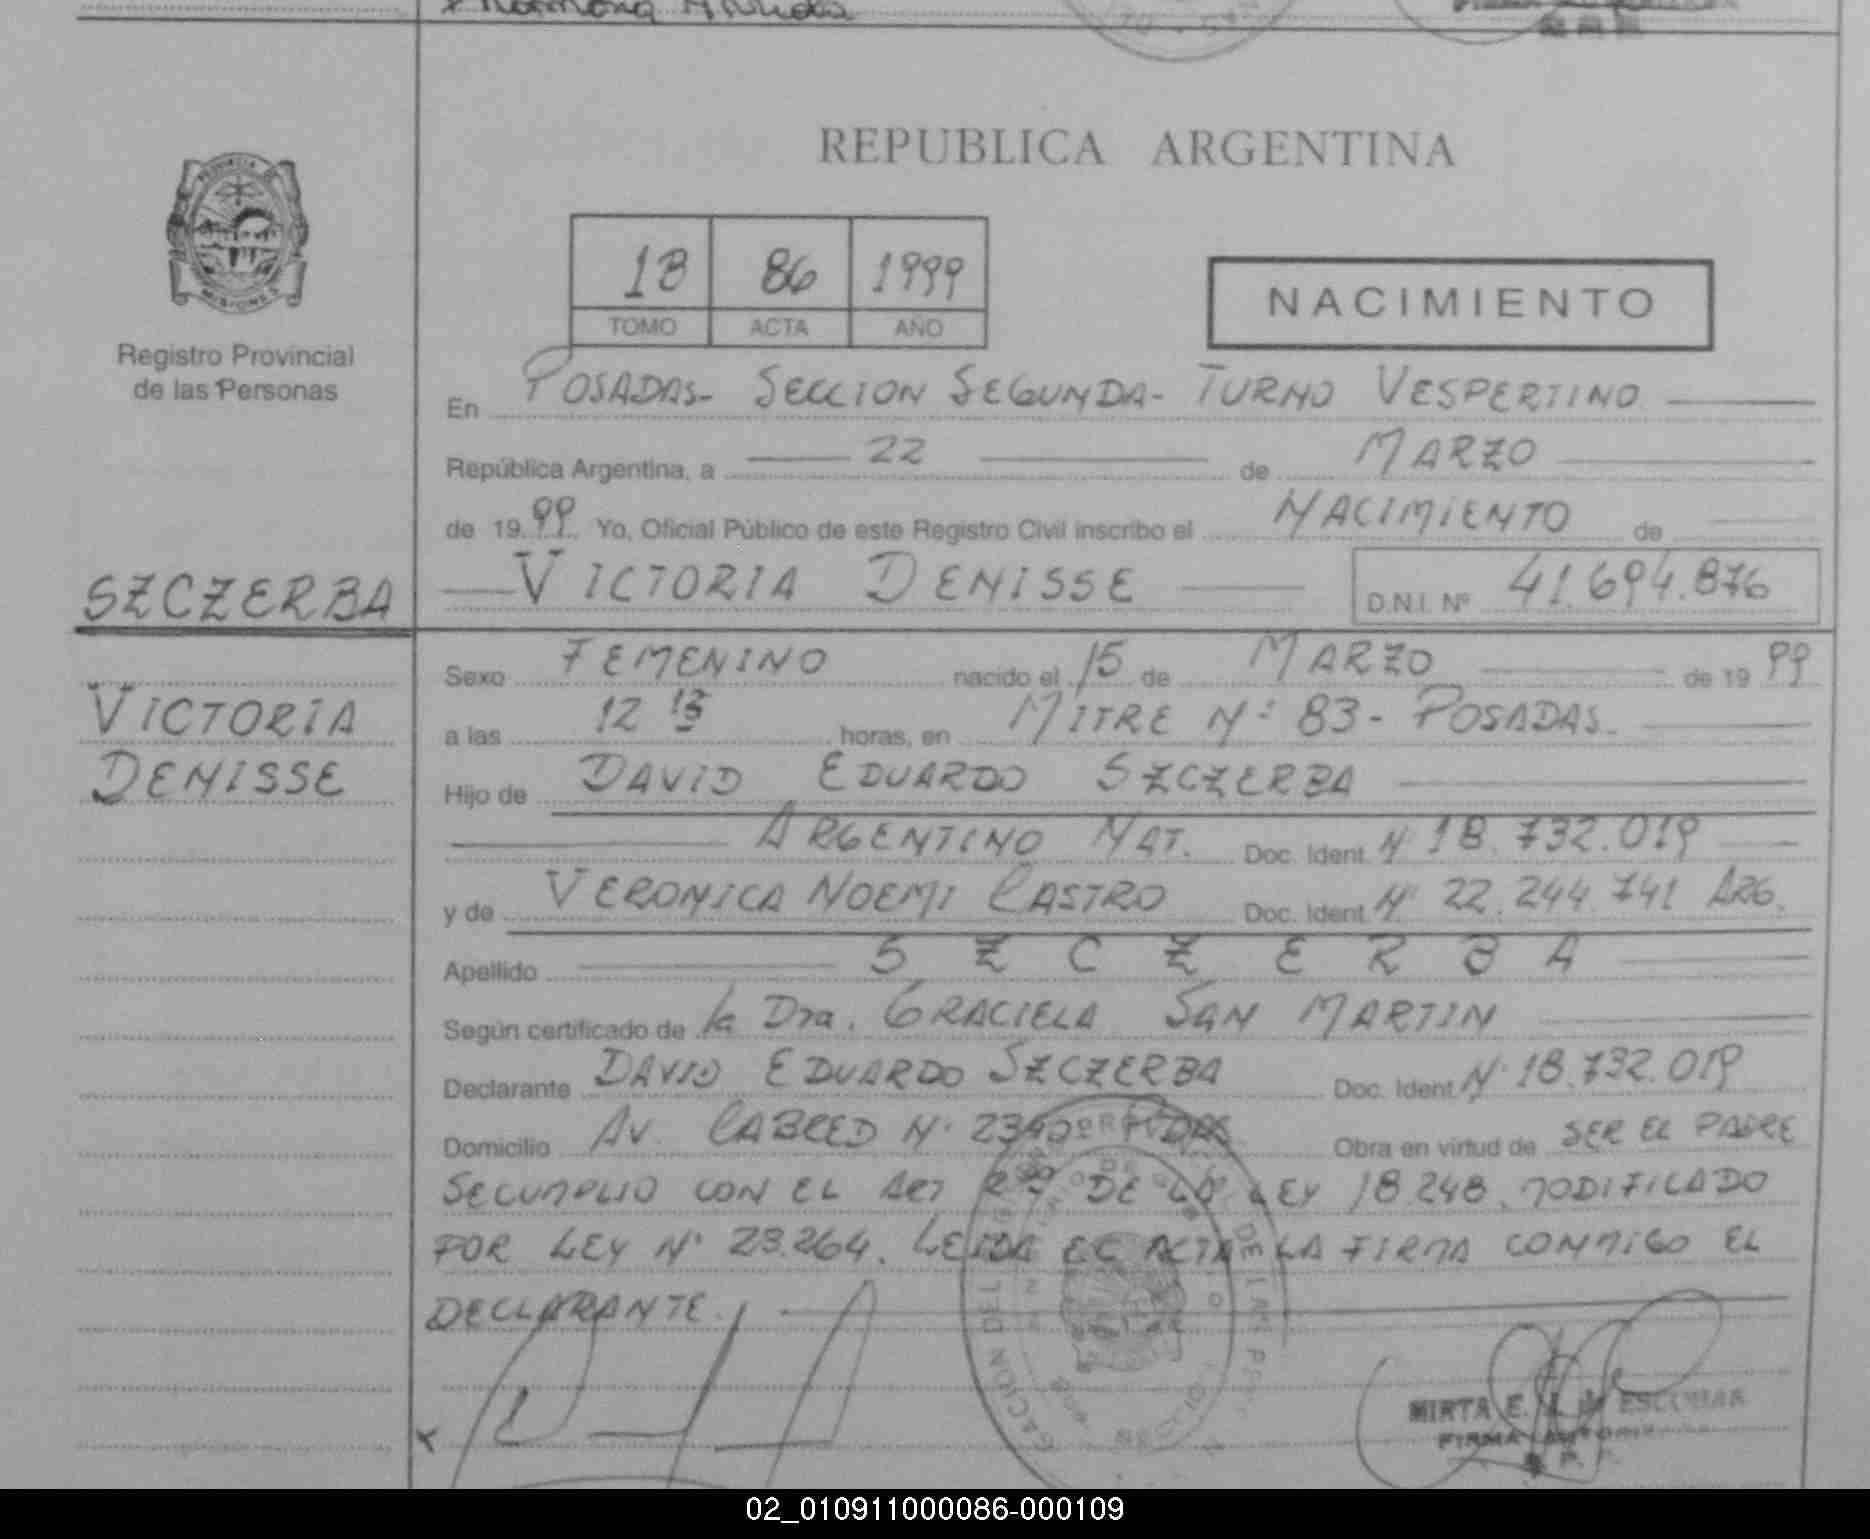 REPUBLICA ARGENTINA
PROVINCIA DE
MISIONES
Registro Provincial
de las Personas
18 86 1999
TOMO ACTA AÑO
NACIMIENTO
En POSADAS- SECCION SEGUNDA- TURNO VESPERTINO
República Argentina, a 22 de MARZO
de 1999 Yo, Oficial Público de este Registro Civil inscribo el NACIMIENTO de
SZCZERBA
VICTORIA DENISSE D.N.I. Nº 41.694.876
VICTORIA
DENISSE
Sexo FEMENINO nacido el 15 de MARZO de 1999
a las 12 15 horas, en MITRE Nº 83- POSADAS.
Hijo de DAVID EDUARDO SZCZERBA
ARGENTINO NAT. Doc. Ident. Nº 18.732.019
y de VERONICA NOEMI CASTRO Doc. Ident. Nº 22.244.741 ARG.
Apellido SZCZERBA
Según certificado de la Dra. GRACIELA SAN MARTIN
Declarante DAVID EDUARDO SZCZERBA Doc. Ident. Nº 18.732.019
Domicilio AV. CABRED Nº Obra en virtud de SER EL PADRE
SECUMPLIO CON EL ART DE LA LEY 18.248, MODIFICADO
POR LEY Nº 23.264. LEIDA EL ACTA LA FIRMA CONMIGO EL
DECLARANTE.
MIRTA E. ESCOBAR
FIRMA
02_010911000086-000109